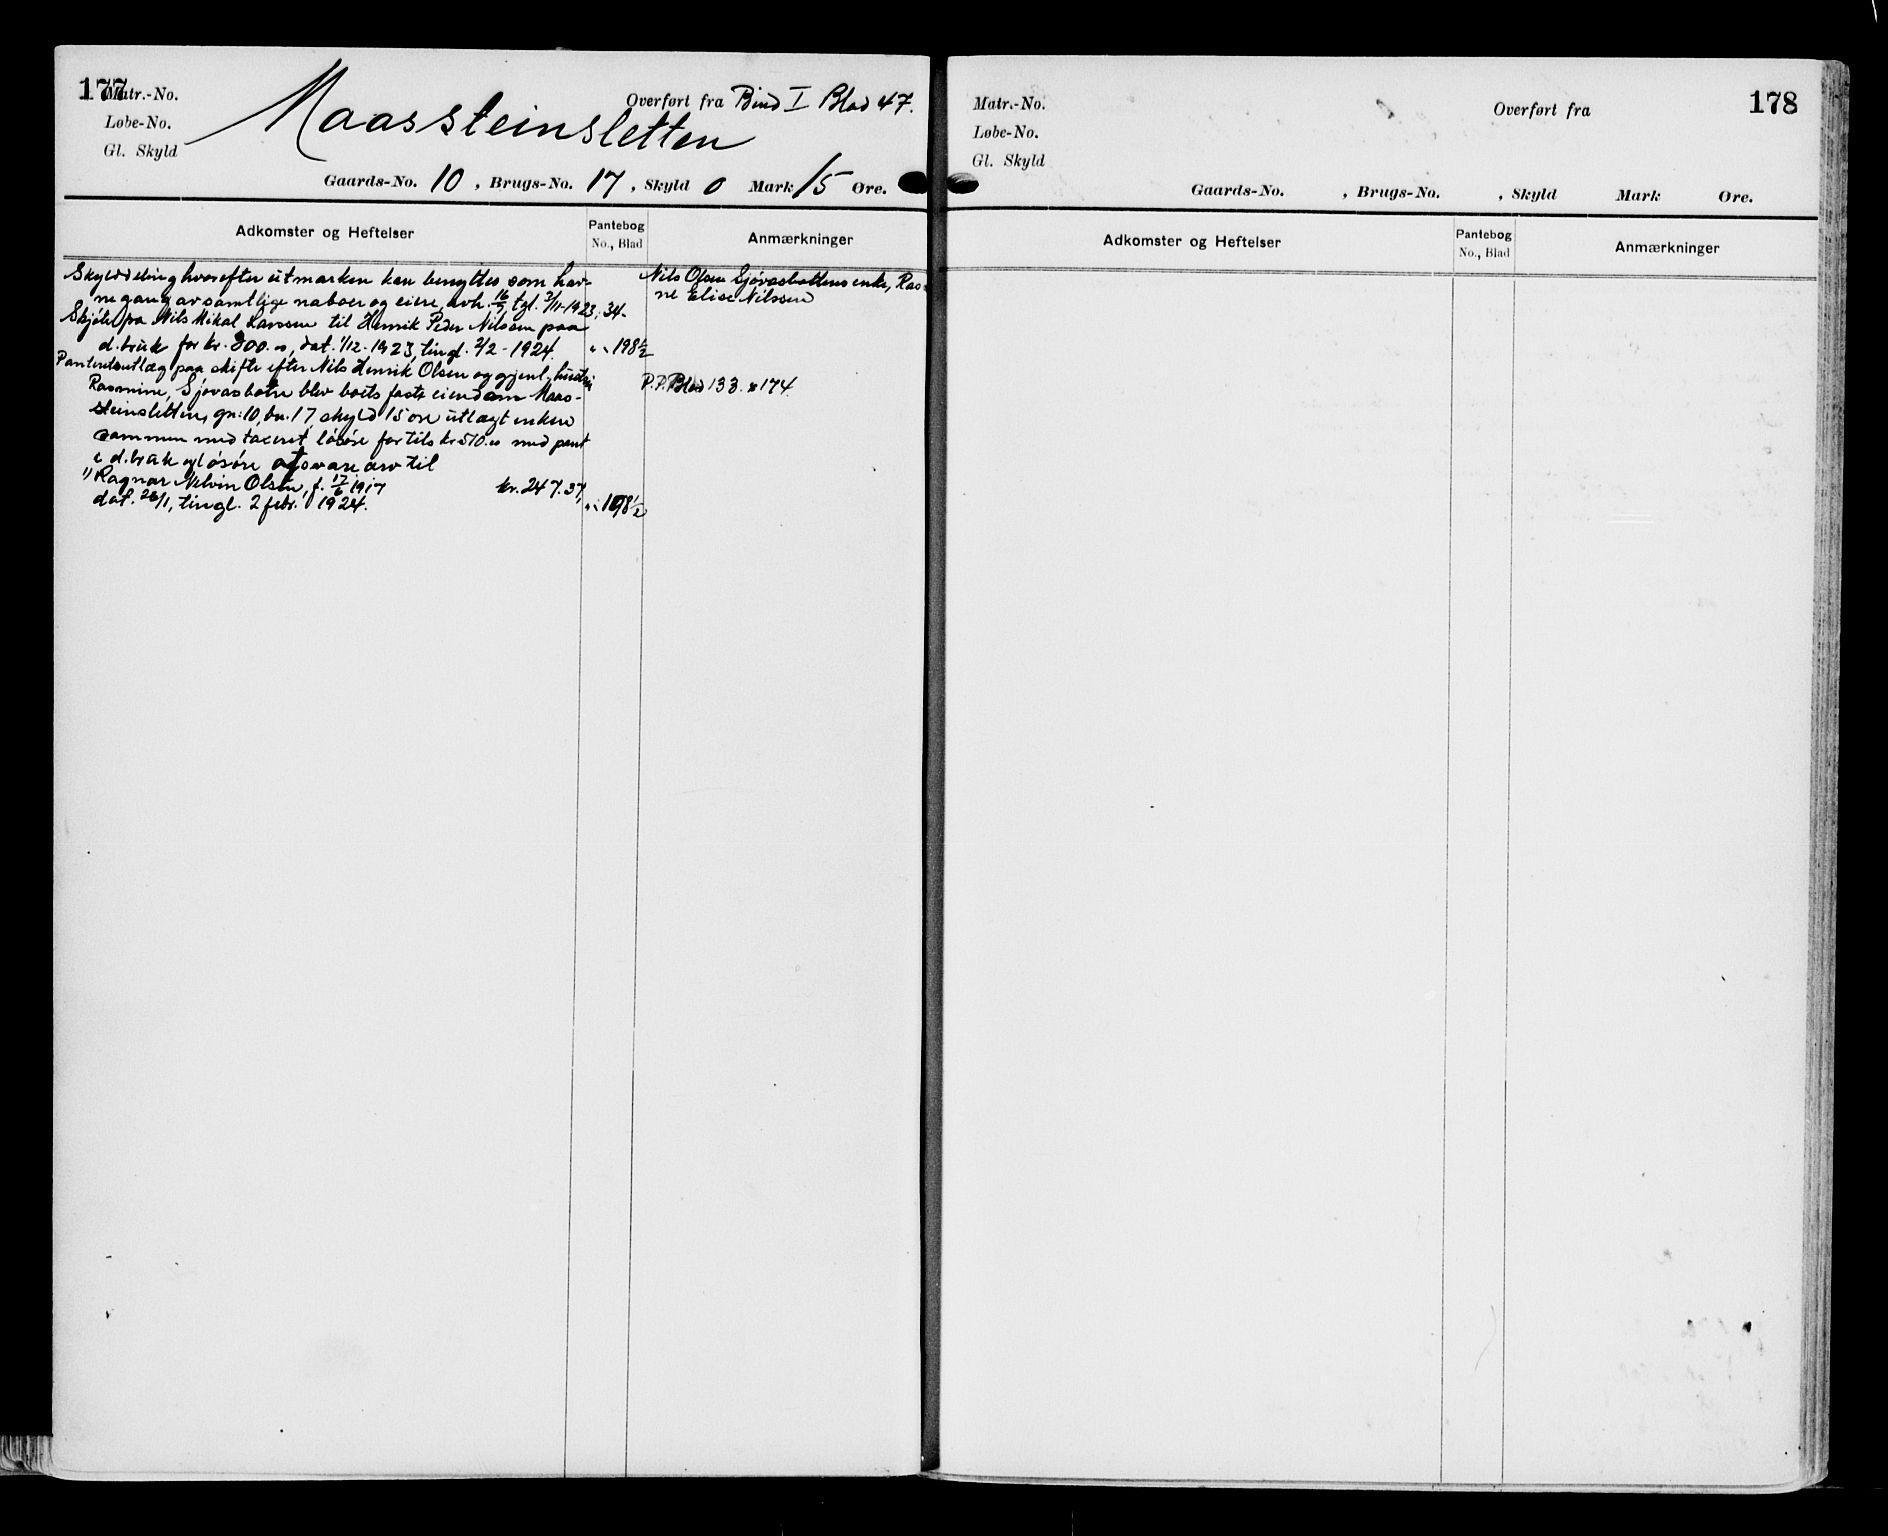 177
Matr.-No.
Løbe-No.
Gl. Skyld
Maassteinsletten
Overført fra Bind I Blad 47.
Gaards-No. 10, Brugs-No. 17, Skyld 0 Mark 15 Øre.
Adkomster og Heftelser
Pantebog
No., Blad
Anmærkninger
Skylddeling hvorefter utmarken kan benyttes som hav-
negang av samtlige naboer og eiere, avh. 16/7, tgl. 3/11-1923, 34.
Skjöte fra Nils Mikal Larssen til Henrik Peder Nilssen paa
d. bruk for kr. 300.00, dat. 1/12-1923, tingl. 2/2-1924. " " 198 1/2
Panteutlæg paa skifte efter Nils Henrik Olsen og gjenl. hustru
Rasmine, Sjövasbotn blev boets faste eiendom Maas-
steinsletten, gn: 10, bn. 17, skyld 15 öre utlagt enken
sammen med taxeret lösöre for tils kr 510.00 med pant
i d. bruk og lösöre at svare arv til
" Ragnar Nelvin Olsen, f. 17/6 1917 kr. 247.37,
dat. 26/1, tingl. 2 febr. 1924. " " 198 1/2
Nils Olsen Sjövasbottens enke, Ras-
ne Elise Nilssen
P.P. Blad 133. & 174.
Matr.-No.
Løbe-No.
Gl. Skyld
Overført fra
178
Gaards-No. , Brugs-No. , Skyld Mark Øre.
Adkomster og Heftelser
Pantebog
No., Blad
Anmærkninger